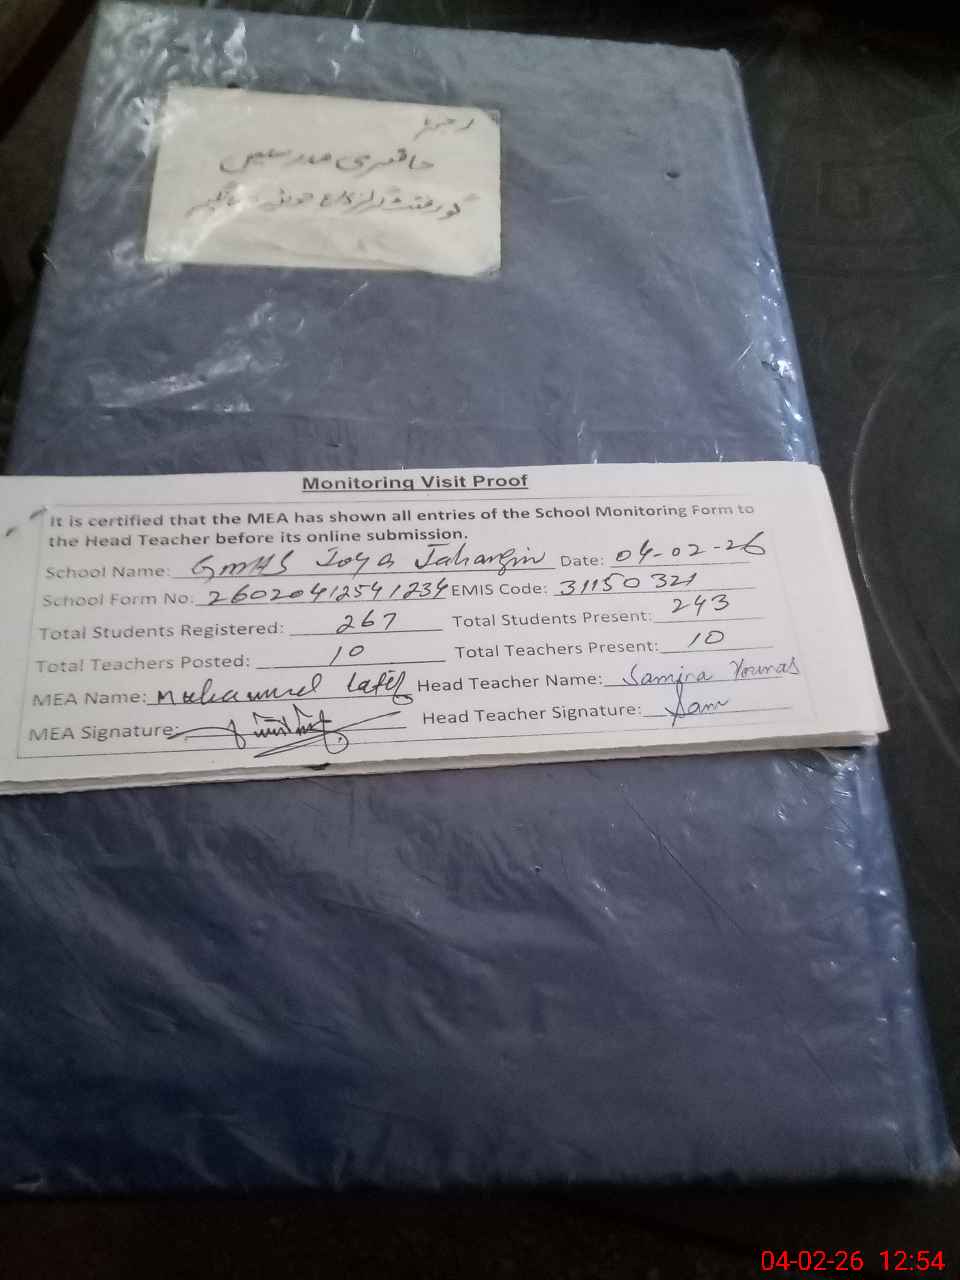 رجسٹر
حاضری مدرسین
گورنمنٹ گرلز
Monitoring Visit Proof
It is certified that the MEA has shown all entries of the School Monitoring Form to
the Head Teacher before its online submission.
School Name: GMHS Joya Jahangir Date: 04-02-26
School Form No: 26020412541234 EMIS Code: 31150321
Total Students Registered: 267 Total Students Present: 243
Total Teachers Posted: 10 Total Teachers Present: 10
MEA Name: Muhammad Latif Head Teacher Name: Samira Younas
MEA Signature: Head Teacher Signature: Sam
04-02-26 12:54